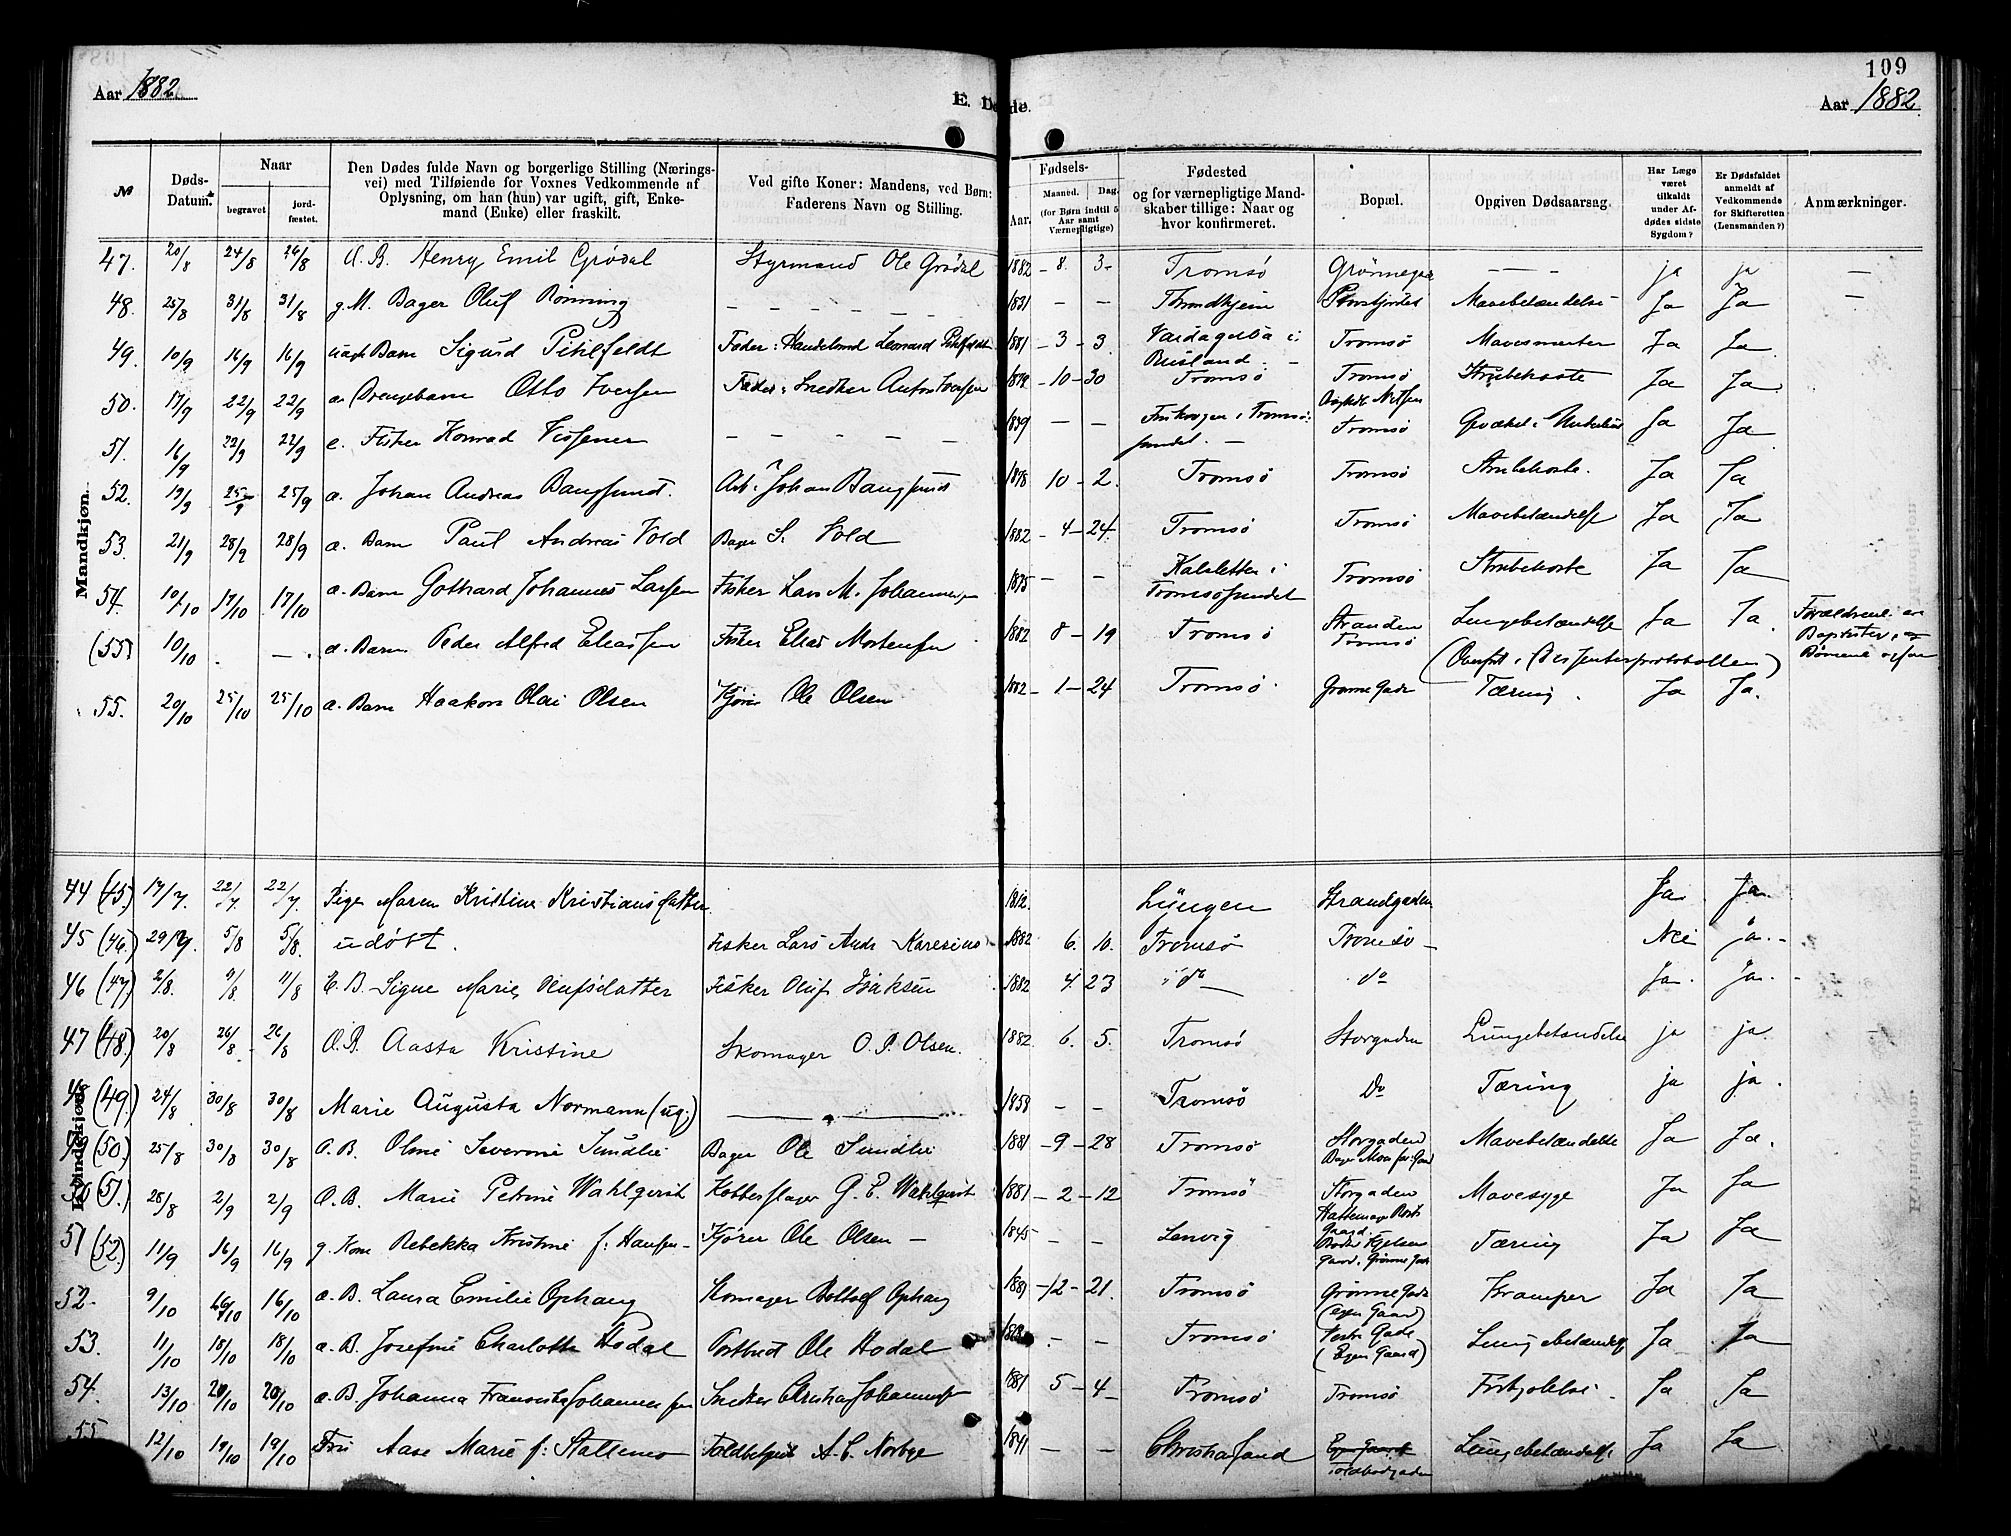 109
Aar 1882
E. Døde.
Aar 1882
№
Døds-Datum.
Naar
begravet
jord-fæstet.
Den Dødes fulde Navn og borgerlige Stilling (Nærings-
vei) med Tilføiende for Voxnes Vedkommende af
Oplysning, om han (hun) var ugift, gift, Enke-
mand (Enke) eller fraskilt.
Ved gifte Koner: Mandens, ved Børn:
Faderens Navn og Stilling.
Fødsels-
Aar.
Maaned.
Dag.
(for Børn indtil 5
Aar samt
Værnepligtige)
Fødested
og for værnepligtige Mand-
skaber tillige: Naar og
hvor konfirmeret.
Bopæl.
Opgiven Dødsaarsag.
Har Læge
været
tilkaldt
under Af-
dødes sidste
Sygdom?
Er Dødsfaldet
anmeldt af
Vedkommende
for Skifteretten
(Lensmanden?)
Anmærkninger.
Mandkjøn.
47. 20/8 24/8 26/8 Æ. B. Henry Emil Grødal Styrmand Ole Grødal 1882 – 8. 3 – Tromsø Grønnegad – – – ja ja –
48. 25/8 31/8 31/8 g. M. Bager Oluf Rønning – – – – – – 1831 – – Throndhjem Storfjordet Mavebetændelse Ja Ja –
49. 10/9 16/9 16/9 Barn Sigurd Pihlfeldt Fader: Handelsmd Leonard Pihlfeldt 1881 – 3 – 3 i Rusland. – Tromsø Mavesmerter Ja Ja
50. 17/9 22/9 22/9 æ. Drengebarn Otto Iversen Fader: Snedker Anton Iversen 1879 – 10 – 30 Tromsø Tromsø Strubehoste Ja Ja
51. 16/9 22/9 22/9 e. Fisker Konrad – – – – – 1839 – – i Tromsø-
sundet. – Tromsø i Underlivet Ja Ja
52. 19/9 25/9 25/9 æ. Johan Andreas Bangsund. Arb. Johan Bangsund 1878 10 – 2. Tromsø Tromsø Strubehoste. Ja Ja
53. 21/9 28/9 28/9 æ. Barn Paul Andreas Vold Bager S. Vold 1882 – 4 – 24 Tromsø Tromsø Mavebetændelse Ja Ja
54. 10/10 17/10 17/10 æ. Barn Gothard Johannes Larsen Fisker Lars M. Johannesen 1875 – – i
Tromsøsundet Tromsø Strubehoste Ja Ja
(55) 10/10 – æ. Barn Peder Alfred Eliassen Fisker Elias Mortensen 1882 8 – 19 Tromsø Stranden
Tromsø Lungebetændelse Ja Ja. Forældrene er
Baptister,
Børnene
(Overført i Dissenterprotokollen)
55. 20/10 25/10 25/10 æ. Barn Haakon Olai Olsen Kjører Ole Olsen 1882 – 1 – 24 Tromsø Grønne Gade Tæring. Ja Ja.
Kvindekjøn.
44 (45.) 17/7. 22/7. 22/7 Pige Maren Kristine Kristiansdatter. 1812. Lyngen Strandgaden Ja Ja.
45 (46.) 29/7. 5/8 5/8. udøbt. Fisker Lars Andr. Karesius 1882 6. 10. Tromsø Tromsø – Nei ja. –
46 (47) 2/8. 11/8 E. B. Signe Marie Olufsdatter Fisker Oluf Isaksen 1882 4. 23 do do ja. ja. –
47 (48.) 20/8 26/8 26/8 Æ. B. Aasta Kristine Skomager O. P. Olsen. 1882 6. 5. Tromsø Storgaden Lungebetændelse ja ja.
48 (49.) 24/8 30/8 30/8 Marie Augusta Normann (ug.) – 1858 – – Tromsø Do Tæring ja ja.
49 (50) 25/8 30/8 30/8 Æ. B. Oline Severine Sundlie Bager Ole Sundlie 1881 – 9 – 28 Tromsø Storgaden
Mavebetændelse Ja Ja.
50 (51. 28/8 2/9 2/9 Æ. B. Marie Petrine Wahlqvist Kobberslager G. E. Wahlqvist 1881 – 2 – 12 Tromsø Storgaden
Gaard. Mavesyge Ja Ja
51 (52.) 11/9 16/9 16/9 g. Kone Rebekka Kristine f: Hansen – Kjører Ole Olsen – 1845 – – Lenvig
Gaard, Grønne Gade Tæring Ja Ja
52. 9/10 16/10 16/10 æ. B. Laura Emilie Ophaug Skomager Ophaug – 12 – 21. Tromsø Grønne Gade
(egen Gaard) Kramper Ja Ja
53. 11/10 18/10 18/10 æ. B. Josefine Charlotte Hodal Postbud Ole Hodal – Tromsø Vestre Gade
(Egen Gaard) Lungebetændelse Ja Ja
54. 13/10 20/10 20/10 æ. B. Johanna Johannessen Snedker Johannessen 1881 5 – 4 – Tromsø Tromsø Forkjølelse. Ja Ja
55 12/10 19/10 19/10 Fru Aase Marie f: Stallemo A. C. Norbye 1841 – – Christiansand Egen Gaard
Toldbodgaden Lungebetændelse Ja Ja